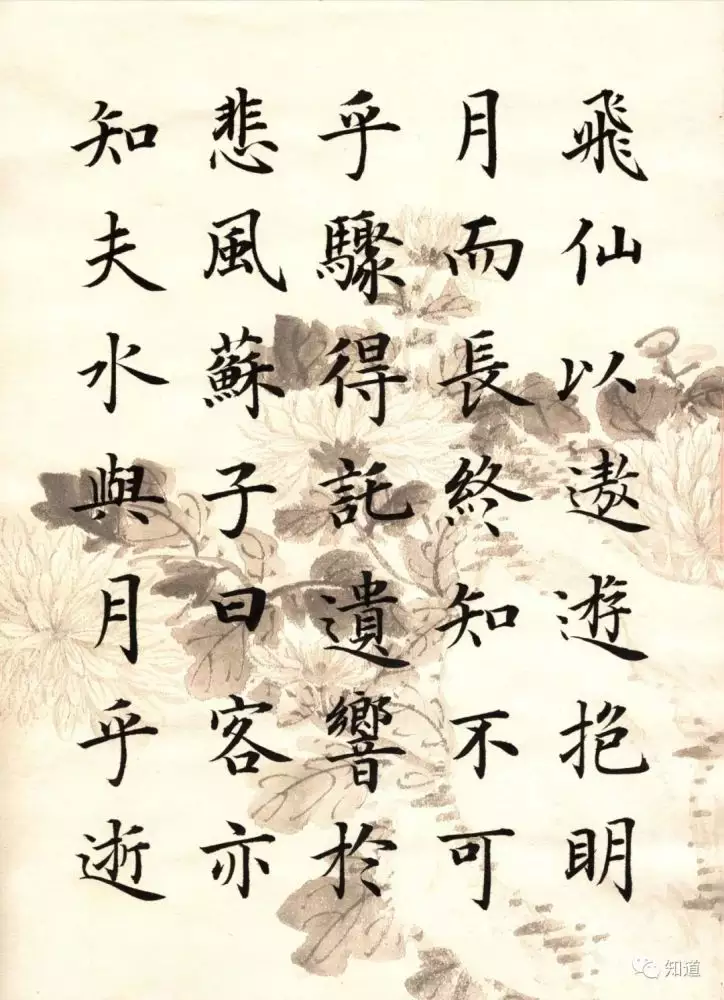 飛仙以遨遊抱明
月而長終知不可
乎驟得託遺響於
悲風蘇子曰客亦
知夫水與月乎逝
知道